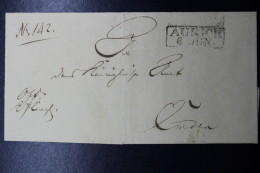 No 142.
AURICH
6 JUN.
An
das Königliche Amt
Emden